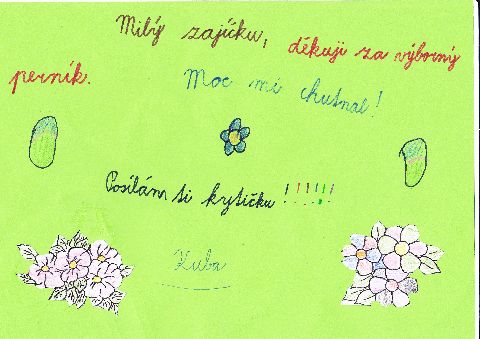 Milý zajíčku, děkuji za výborný
perník. Moc mi chutnal!
Posílám ti kytičku!!!!!!!
Kuba